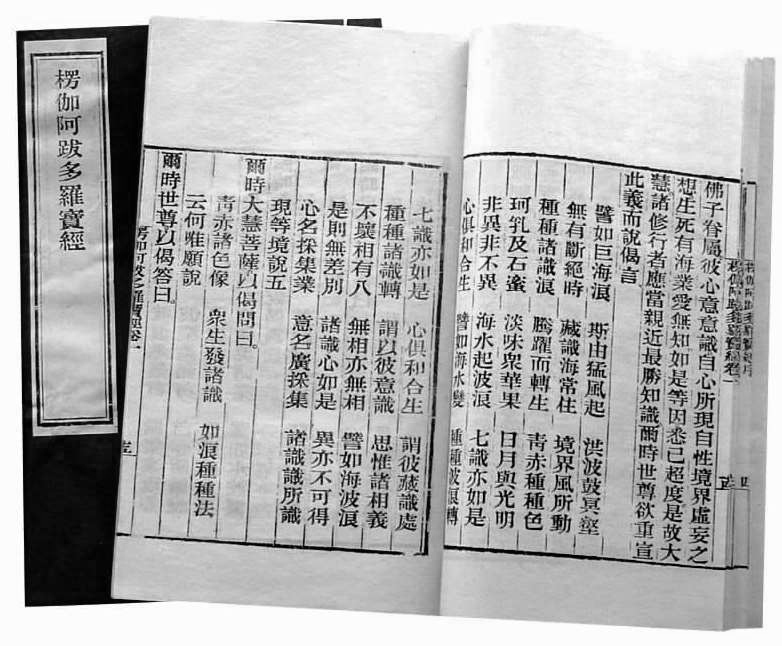 楞伽阿跋多羅寶經
佛子眷屬彼心意意識自心所現自性境界虛妄之
想生死有海業愛無知如是等因悉已超度是故大
慧諸修行者應當親近最勝知識爾時世尊欲重宣
此義而說偈言
譬如巨海浪 斯由猛風起 洪波鼓冥壑
無有斷絕時 藏識海常住 境界風所動
種種諸識浪 騰躍而轉生 靑赤種種色
珂乳及石蜜 淡味衆華果 日月與光明
非異非不異 海水起波浪 七識亦如是
心俱和合生 譬如海水變 種種波浪轉
七識亦如是 心俱和合生 謂彼藏識處
種種諸識轉 謂以彼意識 思惟諸相義
不壞相有八 無相亦無相 譬如海波浪
是則無差別 諸識心如是 異亦不可得
心名採集業 意名廣採集 諸識識所識
現等境說五
爾時大慧菩薩以偈問曰。
靑赤諸色像 衆生發諸識 如浪種種法
云何唯願說
爾時世尊以偈答曰。
楞伽阿跋多羅寶經卷一